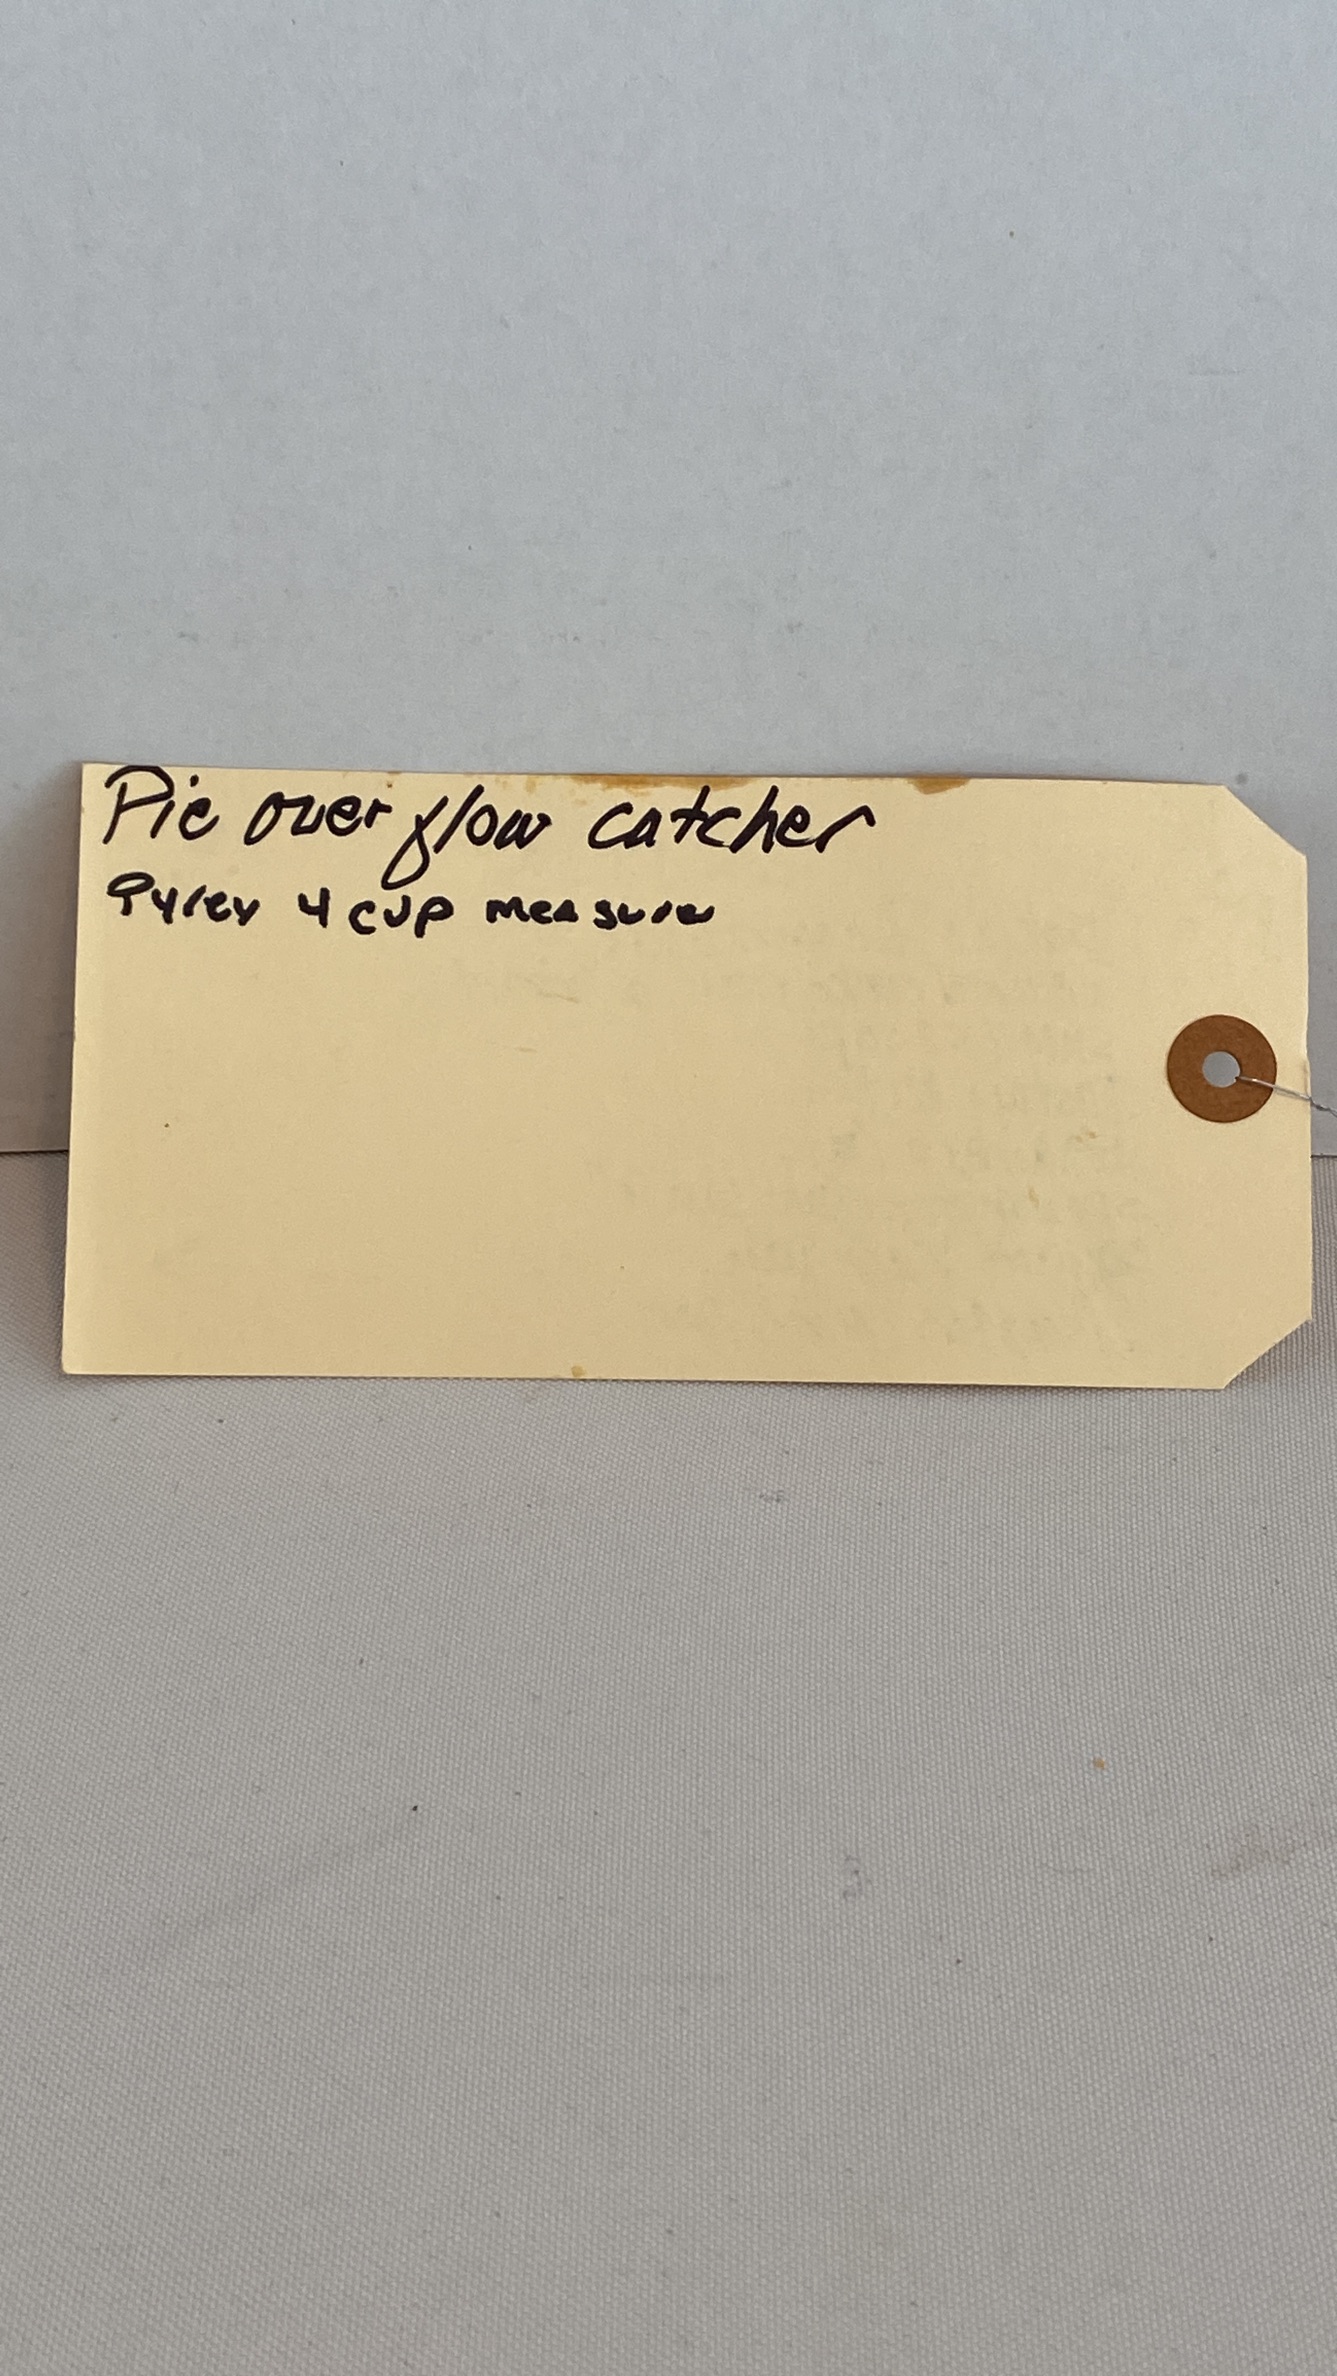 Pie over flow catcher
Pyrex 4 cup measure